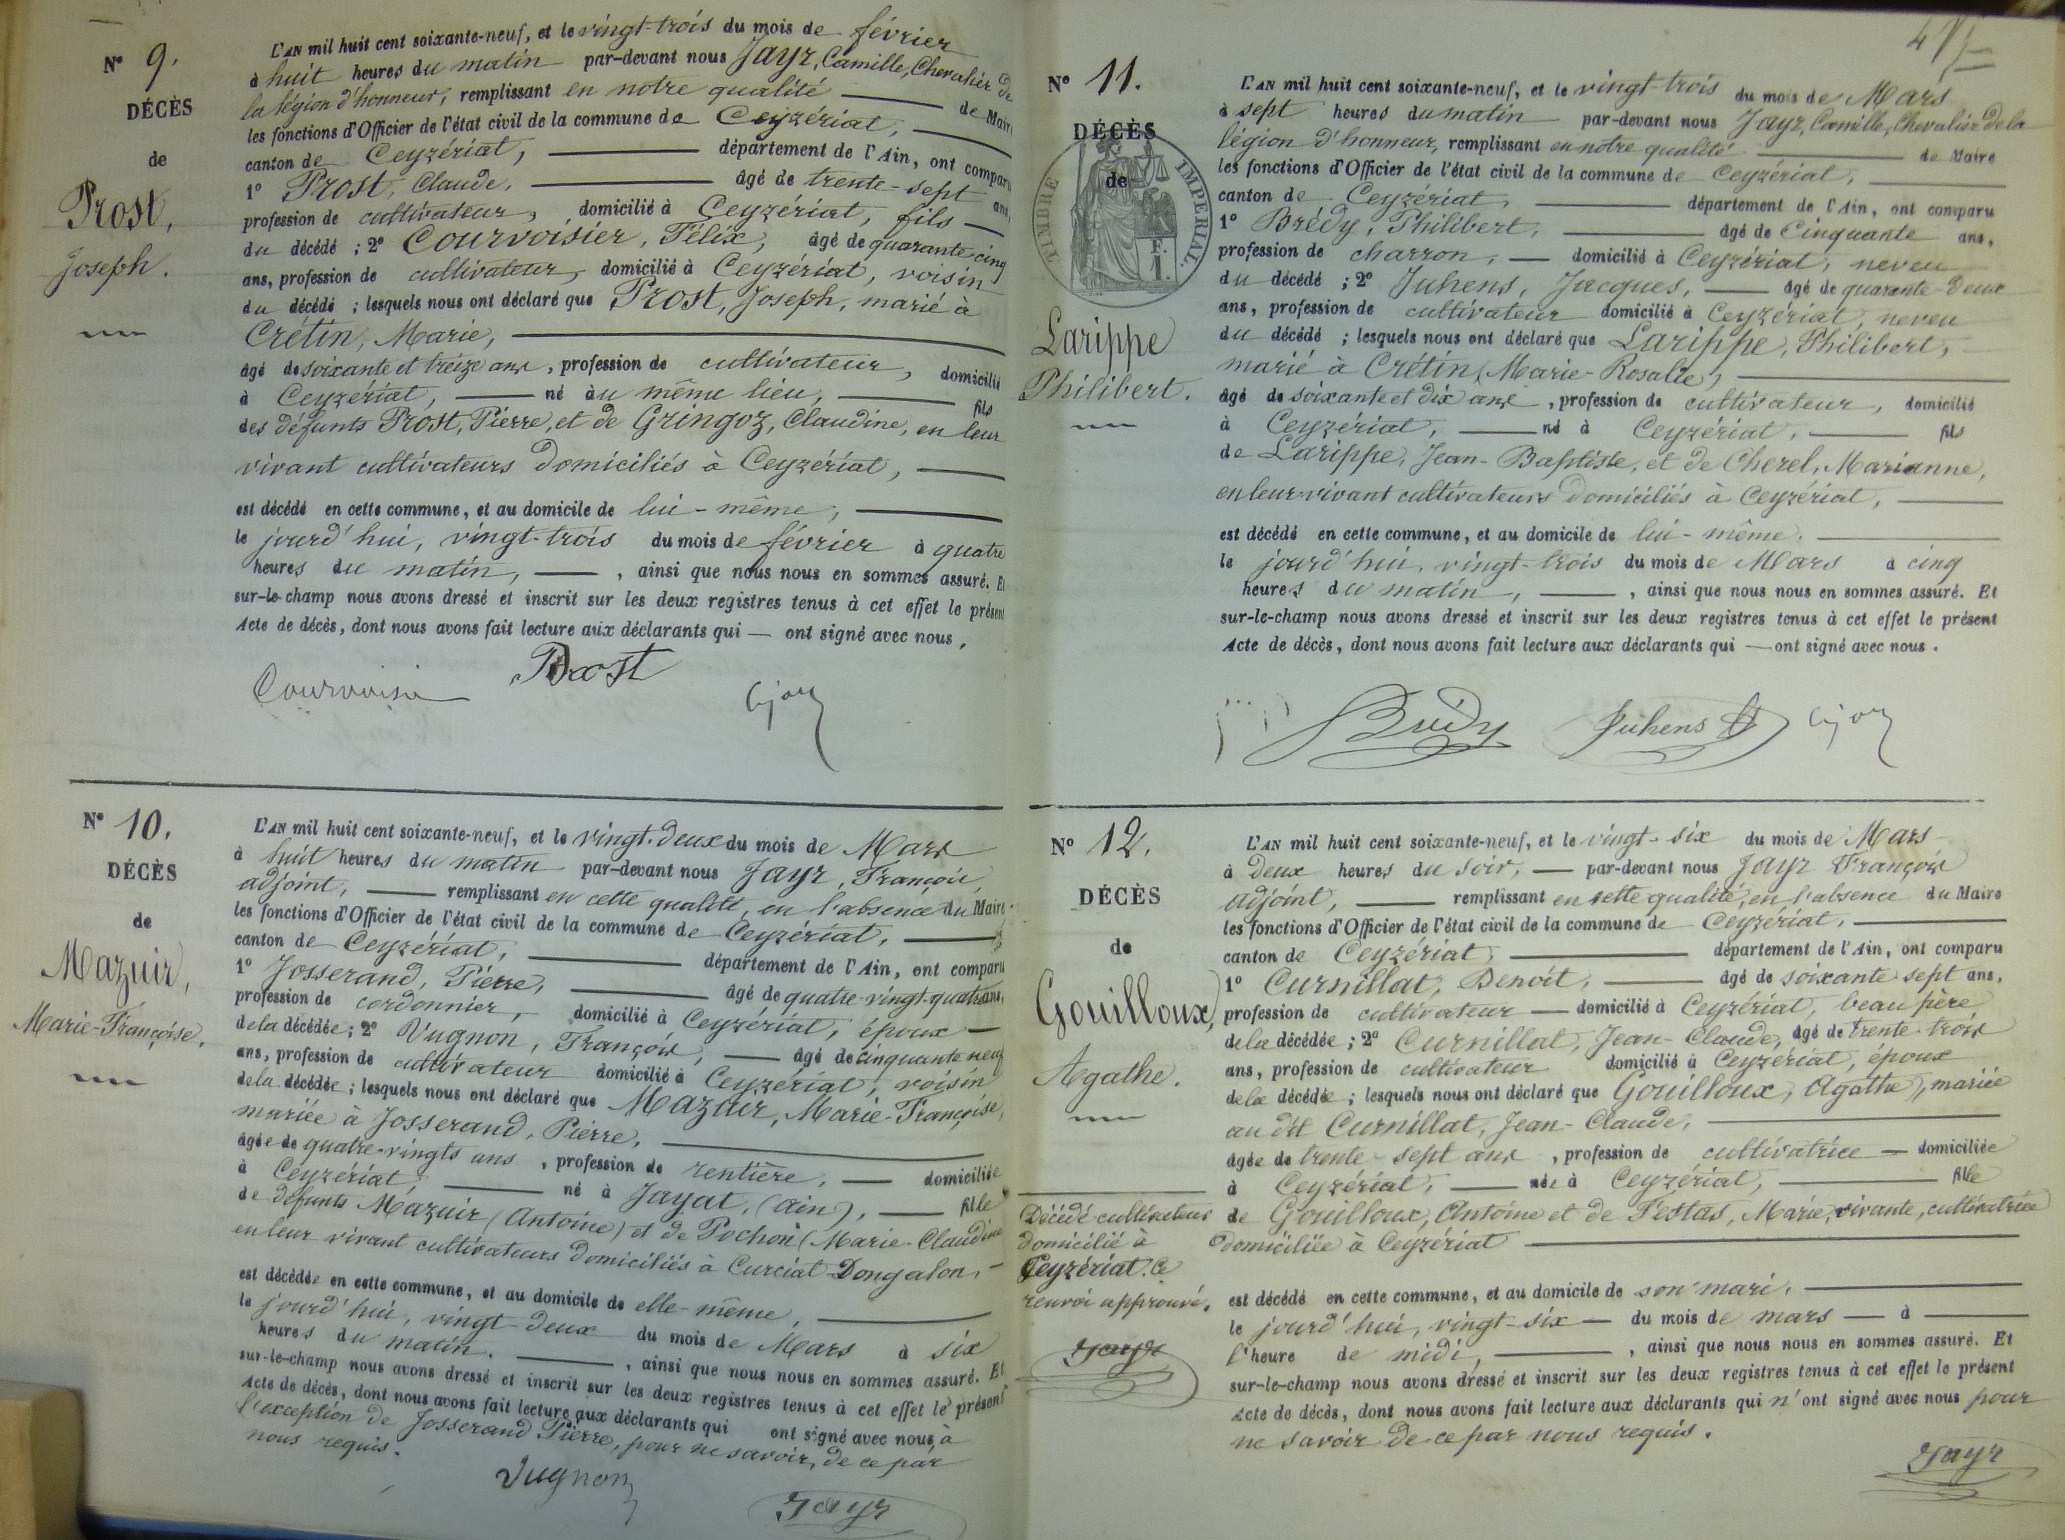 Nº 9.
DÉCÈS
de
Prost,
Joseph.
L'AN mil huit cent soixante-neuf, et le vingt-trois du mois de février
à huit heures du matin par-devant nous Jayr, Camille, Chevalier de
la légion d'honneur, remplissant en notre qualité de Maire
les fonctions d'Officier de l'état civil de la commune de Ceyzériat,
canton de Ceyzériat, département de l'Ain, ont comparu
1º Prost, Claude, âgé de trente-sept ans,
profession de cultivateur, domicilié à Ceyzériat, fils
du décédé ; 2º Courvoisier, Félix, âgé de quarante-cinq
ans, profession de cultivateur, domicilié à Ceyzériat, voisin
du décédé ; lesquels nous ont déclaré que Prost, Joseph, marié à
Crétin, Marie,
âgé de soixante et treize ans, profession de cultivateur, domicilié
à Ceyzériat, né au même lieu, fils
des défunts Prost, Pierre, et de Gringoz, Claudine, en leur
vivant cultivateurs domiciliés à Ceyzériat,
est décédé en cette commune, et au domicile de lui-même,
le jourd'hui, vingt-trois du mois de février à quatre
heures du matin, , ainsi que nous nous en sommes assuré. Et
sur-le-champ nous avons dressé et inscrit sur les deux registres tenus à cet effet le présent
Acte de décès, dont nous avons fait lecture aux déclarants qui — ont signé avec nous.
Courvoisier Prost C. Jayr
Nº 10.
DÉCÈS
de
Mazuir,
Marie-Françoise.
L'AN mil huit cent soixante-neuf, et le vingt-deux du mois de Mars
à huit heures du matin par-devant nous Jayr, François,
adjoint, remplissant en cette qualité, en l'absence du Maire
les fonctions d'Officier de l'état civil de la commune de Ceyzériat,
canton de Ceyzériat, département de l'Ain, ont comparu
1º Josserand, Pierre, âgé de quatre-vingt-quatre ans,
profession de cordonnier, domicilié à Ceyzériat, époux
de la décédée ; 2º Vugnon, François, âgé de cinquante neuf
ans, profession de cultivateur domicilié à Ceyzériat, voisin
de la décédée ; lesquels nous ont déclaré que Mazuir, Marie-Françoise,
mariée à Josserand, Pierre,
âgée de quatre-vingts ans, profession de rentière, domiciliée
à Ceyzériat, né à Jayat, (Ain), fille
de défunts Mazuir (Antoine) et de Pochon (Marie-Claudine
en leur vivant cultivateurs domiciliés à Curciat-Dongalon,
est décédée en cette commune, et au domicile de elle-même,
le jourd'hui, vingt-deux du mois de Mars à six
heures du matin. , ainsi que nous nous en sommes assuré. Et
sur-le-champ nous avons dressé et inscrit sur les deux registres tenus à cet effet le présent
Acte de décès, dont nous avons fait lecture aux déclarants qui ont signé avec nous, à
l'exception de Josserand Pierre, pour ne savoir, de ce par
nous requis.
Vugnon
Jayr
Nº 11.
DÉCÈS
de
TIMBRE IMPERIAL
F.
1.
Larippe
Philibert.
L'AN mil huit cent soixante-neuf, et le vingt-trois du mois de Mars
à sept heures du matin par-devant nous Jayr, Camille, Chevalier de la
légion d'honneur, remplissant en notre qualité de Maire
les fonctions d'Officier de l'état civil de la commune de Ceyzériat,
canton de Ceyzériat, département de l'Ain, ont comparu
1º Brédy, Philibert, âgé de Cinquante ans,
profession de charron, domicilié à Ceyzériat, neveu
du décédé ; 2º Juhens, Jacques, âgé de quarante-deux
ans, profession de cultivateur domicilié à Ceyzériat, neveu
du décédé ; lesquels nous ont déclaré que Larippe, Philibert,
marié à Crétin, Marie-Rosalie,
âgé de soixante et dix ans, profession de cultivateur, domicilié
à Ceyzériat, né à Ceyzériat, fils
de Larippe, Jean-Baptiste, et de Cherel, Marianne,
en leur vivant cultivateurs domiciliés à Ceyzériat,
est décédé en cette commune, et au domicile de lui-même.
le jourd'hui, vingt-trois du mois de Mars à cinq
heures du matin, , ainsi que nous nous en sommes assuré. Et
sur-le-champ nous avons dressé et inscrit sur les deux registres tenus à cet effet le présent
Acte de décès, dont nous avons fait lecture aux déclarants qui — ont signé avec nous.
Brédy Juhens C. Jayr
Nº 12.
DÉCÈS
de
Gouilloux,
Agathe.
Décédé cultivateur
domicilié à
Ceyzériat. Ce
renvoi approuvé.
Jayr
L'AN mil huit cent soixante-neuf, et le vingt-six du mois de Mars
à deux heures du soir, par-devant nous Jayr François
adjoint, remplissant en cette qualité, en l'absence du Maire
les fonctions d'Officier de l'état civil de la commune de Ceyzériat,
canton de Ceyzériat, département de l'Ain, ont comparu
1º Curnillat, Benoît, âgé de soixante sept ans,
profession de cultivateur domicilié à Ceyzériat, beau père
de la décédée ; 2º Curnillat, Jean-Claude, âgé de trente-trois
ans, profession de cultivateur domicilié à Ceyzériat, époux
de la décédée ; lesquels nous ont déclaré que Gouilloux, Agathe, mariée
au dit Curnillat, Jean-Claude,
âgée de trente-sept ans, profession de cultivatrice domiciliée
à Ceyzériat, née à Ceyzériat, fille
de Gouilloux, Antoine et de Festas, Marie, vivante, cultivatrice
domiciliée à Ceyzériat
est décédé en cette commune, et au domicile de son mari,
le jourd'hui, vingt-six du mois de mars à
l'heure de midi, , ainsi que nous nous en sommes assuré. Et
sur-le-champ nous avons dressé et inscrit sur les deux registres tenus à cet effet le présent
Acte de décès, dont nous avons fait lecture aux déclarants qui n'ont signé avec nous pour
ne savoir de ce par nous requis.
Jayr